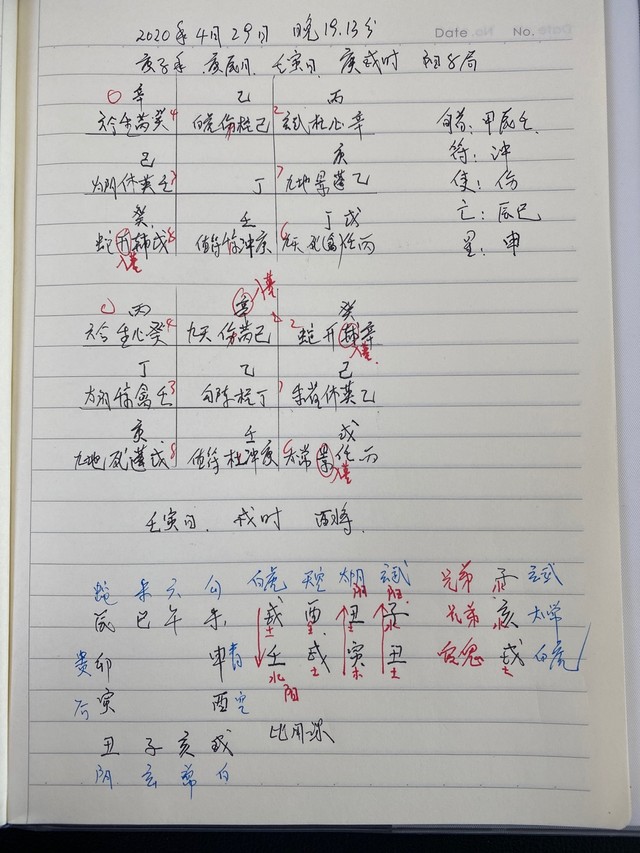 Date No.
2020年4月29日 晚19.13分
庚子年 庚辰月 壬寅日 庚戌时 阳8局
0 辛 乙 丙
六合生芮癸4 白虎伤柱己 2玄武杜心辛 旬首:甲辰壬
己 庚 符:冲
太阴休英壬3 丁 7九地景蓬乙 使:伤
癸 壬 丁戊 亡:辰巳
蛇开辅戊8 值符 冲庚 6九天死禽任丙 星:申
入墓
丙 辛 入墓 癸
六合生心癸4 九天伤芮己 2蛇开辅辛
入墓
丁 乙 己
太阴 禽壬3 勾陈柱丁 7朱雀休英乙
庚 壬 戊
九地死蓬戊8 值符杜冲庚 6太常景任丙
入墓
壬寅日 戌时 酉将
蛇 朱 六 勾 白虎 天空 太阴 玄武 兄弟 子 玄武
阳 阳 水
辰 巳 午 未 戌 酉 丑 子 兄弟 亥 太常
土 金 土 水 水
贵卯 申青 壬 戌 寅 丑 官鬼 戌 白虎
水 土 木 土 土
阳
后寅 酉空
丑 子 亥 戌 比用课
阴 玄 常 白